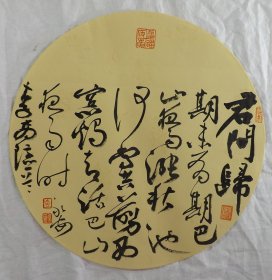 君问歸
期未有期巴
山夜雨涨秋池
何当共剪西
窗烛却话巴山
夜雨时
李商隐